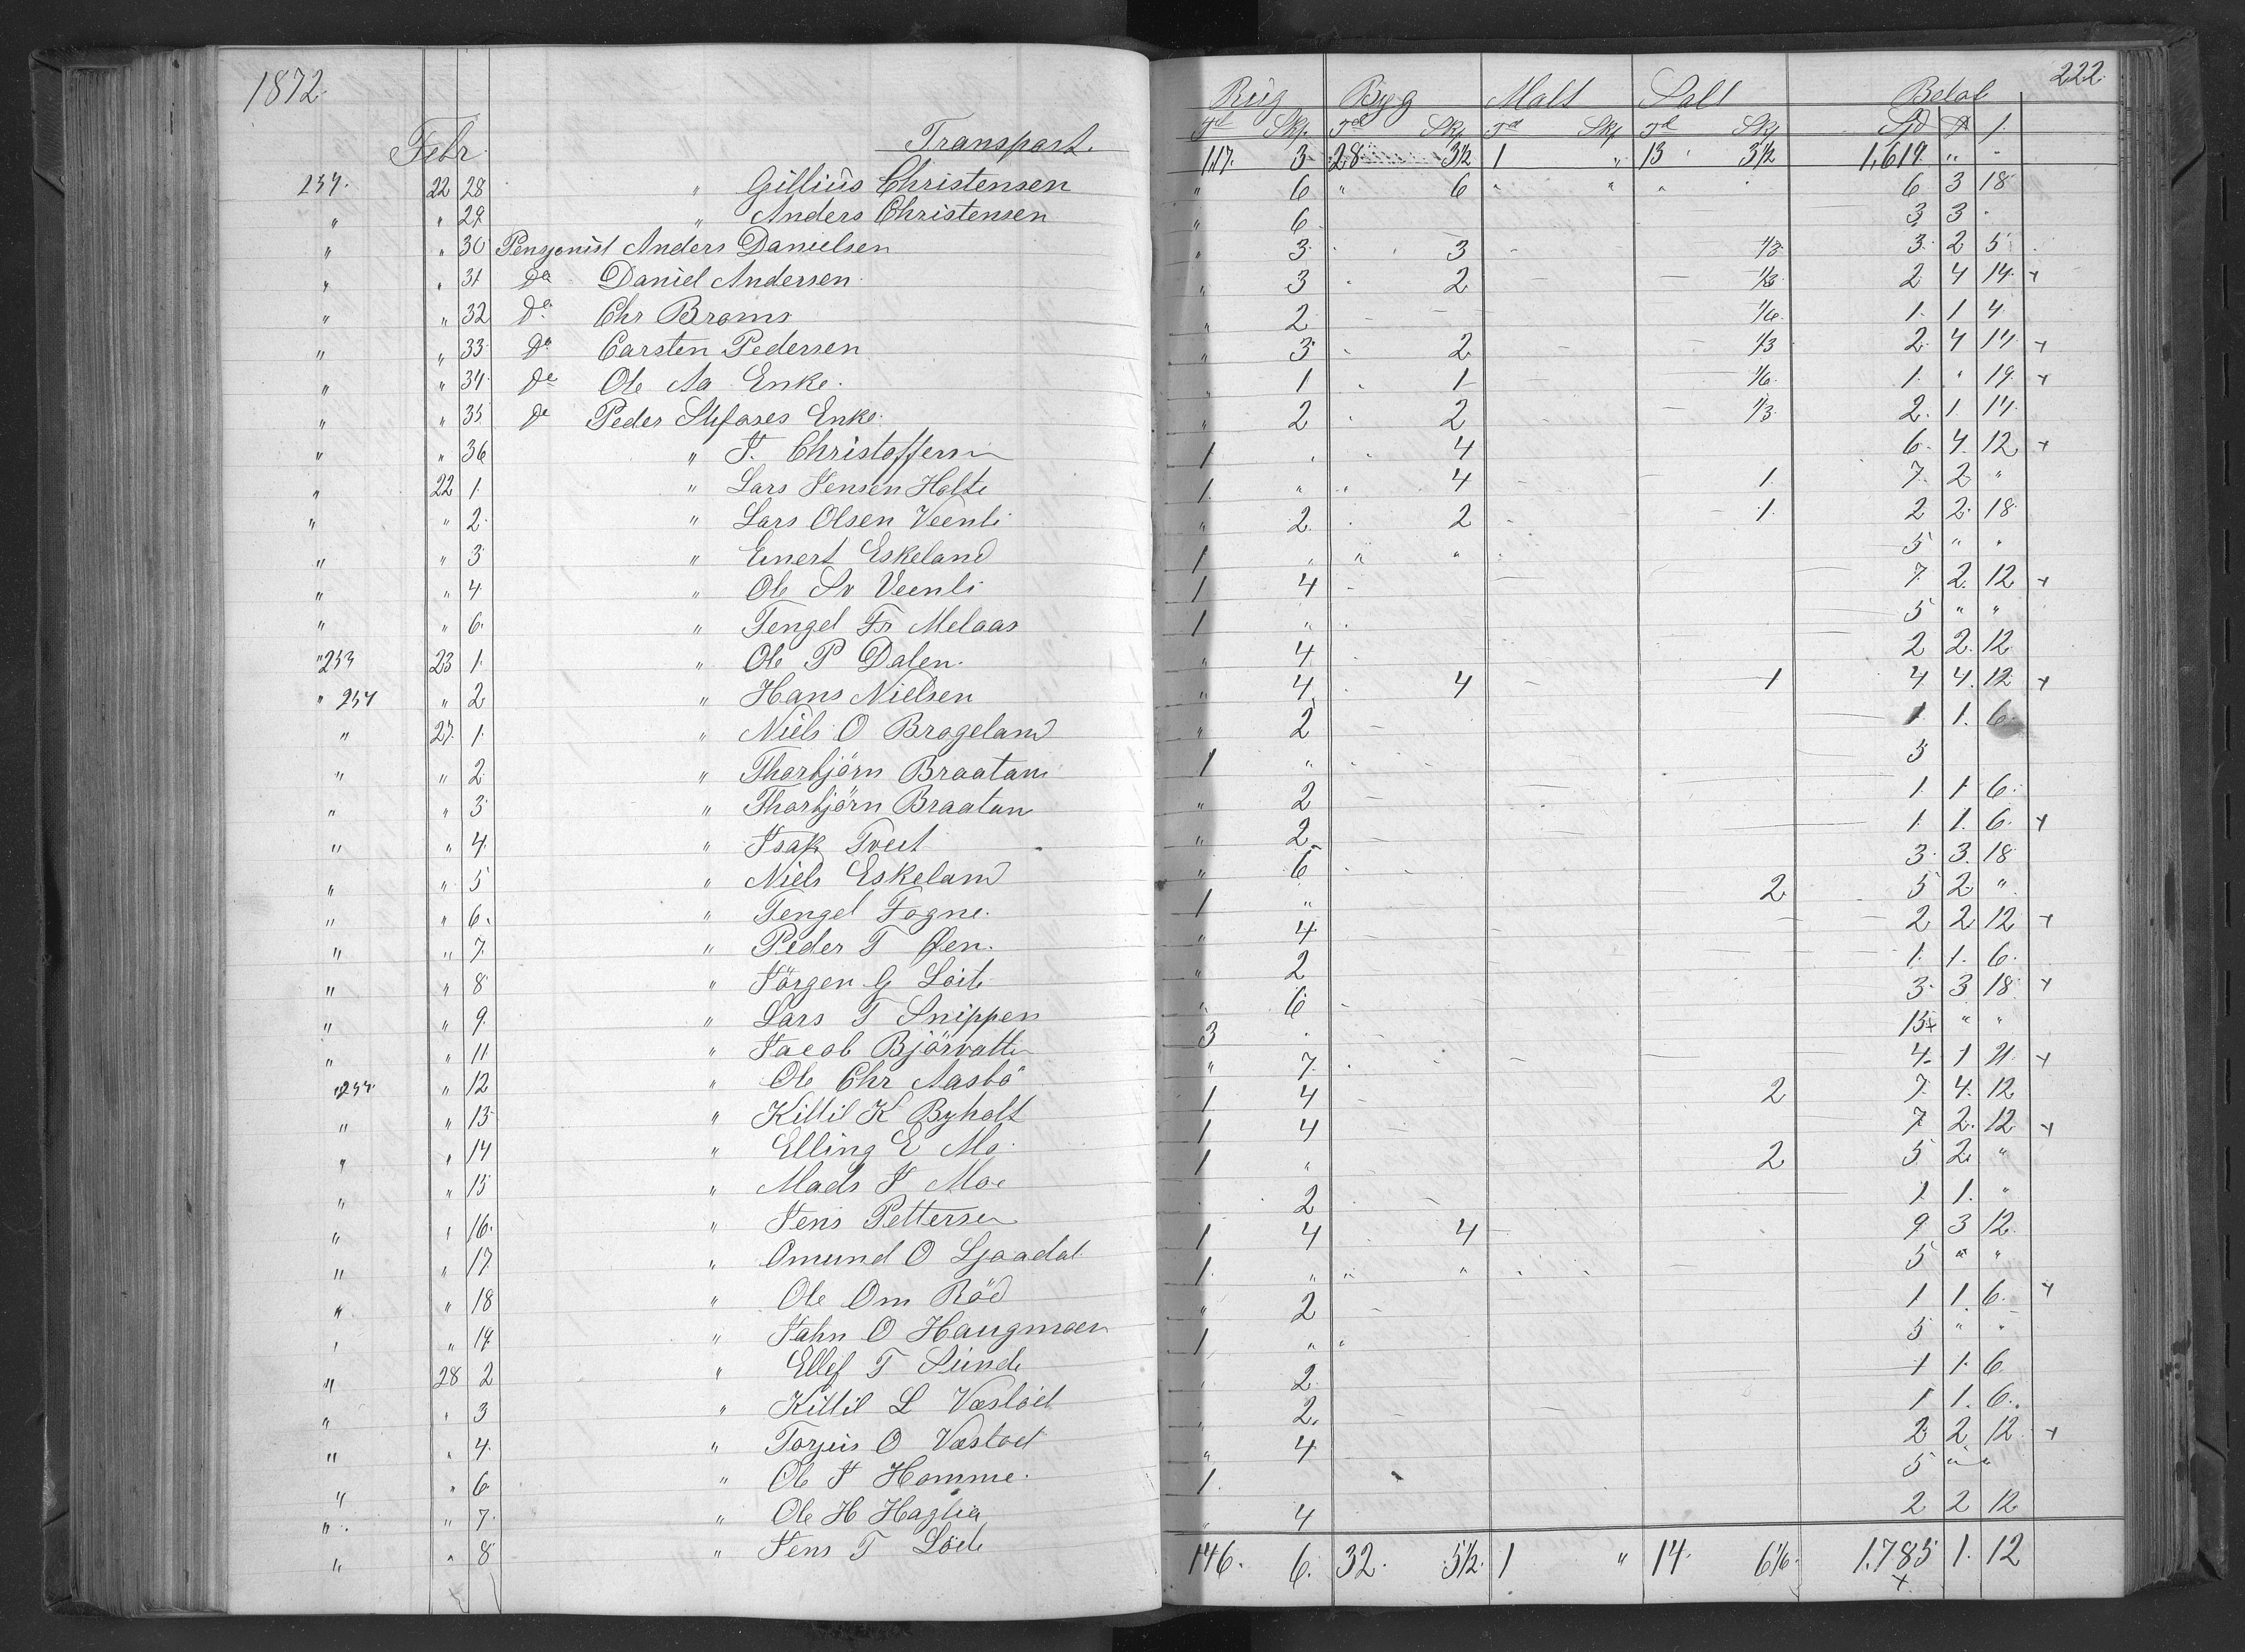 1872.
222.
Rug Byg Malt Salt Beløb
Td Skp. Td Skp Td Skp Td Skp Spd
Febr. Transport. 117. 3 28 3½ 1 " 13 3½ 1,619. " -
257. 22 28 " Gillius Christensen " 6 " 6 " " " 6 3 18
" " 29 " Anders Christensen " 6 3 3 -
" " 30 Pensjonist Anders Danielsen " 3 3 ⅓ 3 2 5
" " 31 Do Daniel Andersen " 3 2 ⅓ 2 4 14 +
" " 32 Do Chr Broms " 2 - - 1/6 1 1 4
" " 33 Do Carsten Pedersen " 3 2 ⅓ 2 4 14 +
" " 34 De Ole Aa Enke. " 1 1 1/6 1 " 19 +
" " 35 De Peder Enke. " 2 2 ⅓ 2 1 14
" " 36 " J. Christoffersen 1 " 4 6 4 12 +
" 22 1 " Lars Jensen Holte 1 " " 4 1 7 2 "
" " 2 " Lars Olsen Veenli " 2 2 1 2 2 18
" " 3 " Einert Eskeland 1 " " " 5 " "
" " 4 " Ole Sv Veenli 1 4 - 7 2 12 +
" " 6 " Tengel Fr Melaas 1 " 5 " "
" 253 23 1 " Ole P Dalen. " 4 2 2 12
" 254 " 2 " Hans Nielsen " 4 4 1 4 4 12 +
" 27 1 " Niels O Brogeland " 2 1 1 6
" " 2 " Thorbjörn Braatan 1 " 5
" " 3 " Thorbjörn Braatan " 2 1 1 6
" " 4 " Isak Tveit " 2 1 1 6 +
" " 5 " Niels Eskeland " 6 3 3 18
" " 6. " Tengel Fogne. 1 " 2 5 2 "
" " 7. " Peder T Øen. " 4 2 2 12 +
" " 8 " Jörgen G Löite " 2 1 1 6
" " 9. " Lars T Snippen " 6 3 3 18 +
" " 11 " Jacob Björvatten 3 15+ " "
" 255 " 12 " Ole Chr Aasbö " 7 4 1 21 +
" " 13 " Kittil K Byholt 1 4 2 7 4 12
" " 14 " Elling E Mo. 1 4 7 2 12 +
" " 15 " Mads J Moe 1 " 2 5 2 "
" " 16. " Jens Pettersen 2 1 1 "
" " 17 " Omund O Ljaadal 1 4 4 9 3 12
" " 18 " Ole Om Röd 1 " " " 5 " "
" " 19. " Jahn O Haugmoen " 2 1 1 6 +
" 28 2 " Ellef T Sunde 1 " " 5 " "
" " 3 " Kittil L Væstöel " 2 1 1 6
" " 4. " Torjus O Væstöel " 2. 1 1 6.
" " 6 " Ole J Homme. " 4 2 2 12 +
" " 7. " Ole H Haglia 1. 5 " "
" " 8 " Jens T Löite " 4 2 2 12
146. 6. 32. 5½. 1 " 14. 6 1/6. 1.785 1. 12
+